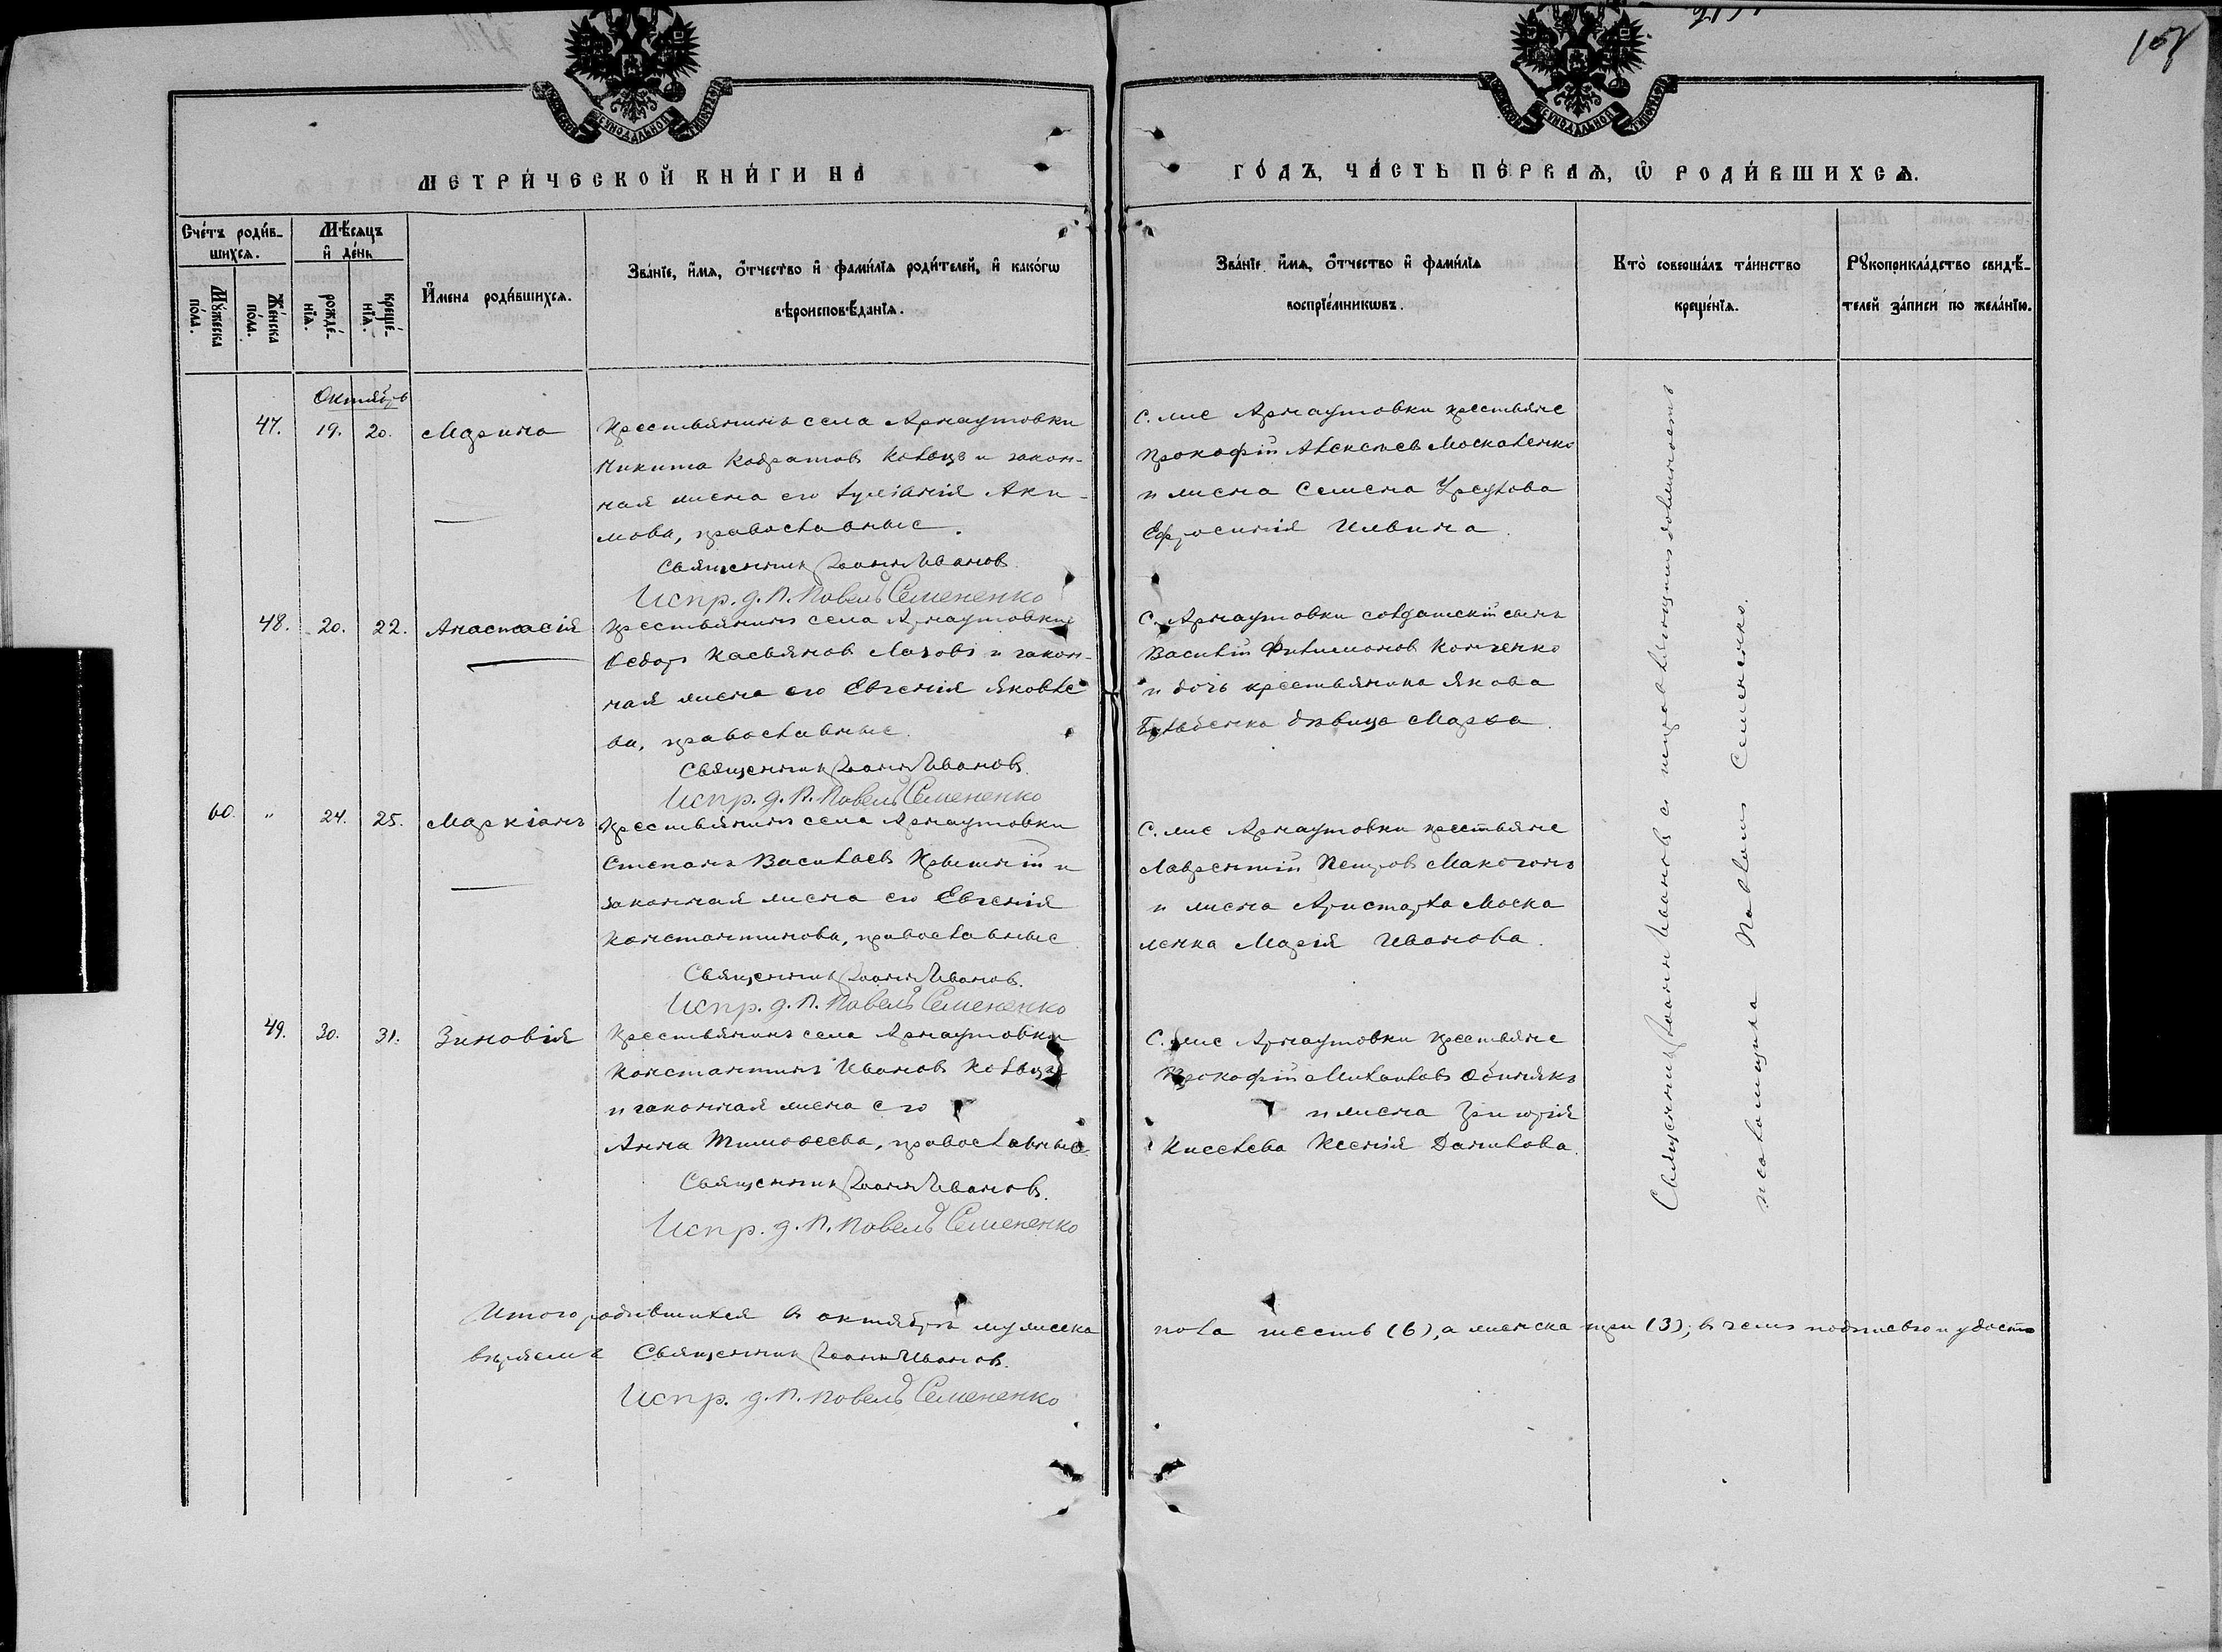 СѴНОДАЛЬНОЙ
СѴНОДАЛЬНОЙ
МЕТРИ́ЧЕСКОЙ КНИ́ГИ НА
ГО́ДЪ, ЧА́СТЬ ПЕ́РВАѦ, Ѽ РОДИ́ВШИХСѦ.
Сче́тъ роди́в-
шихсѧ.
Мꙋ́жеска по́ла.
Же́нска по́ла.
Мѣ́сѧцъ
и҆ де́нь
рожде́-
нїѧ.
креще́-
нїѧ.
И҆мена роди́вшихсѧ.
Зва́нїе, и҆́мѧ, о҆́тчество и҆ фамі́лїѧ роди́телей, и҆ како́гѡ
вѣроисповѣ́данїѧ.
Зва́нїе, и҆́мѧ, о҆́тчество и҆ фамі́лїѧ
воспрїе́мникѡвъ.
Кто̀ соверша́лъ та́инство
креще́нїѧ.
Рꙋкоприкла́дство свидѣ́-
телей за́писи по жела́нїю.
Октябрь
47. 19. 20. Марина
Крестьянинъ села Арнаутовки
Никита Кодратовъ и закон-
ная жена его Аки-
мова, православные.
Священникъ Іоаннъ Ивановъ.
Испр. д. П. Павелъ Семененко
С. же Арнаутовки крестьяне
Прокофій Алексѣевъ Москаленко
и жена Семена
Ефросинія Ильина.
48. 20. 22. Анастасія
Крестьянинъ села Арнаутовки
Ѳедоръ Касьяновъ Лазовъ и закон-
ная жена его Евгенія Яковле
ва, православные.
Священникъ Іоаннъ Ивановъ.
Испр. д. П. Павелъ Семененко
С. Арнаутовки солдатскій сынъ
Василій Филимоновъ Конченко
и дочь крестьянина Якова
дѣвица Марѳа.
60. " 24. 25. Маркіанъ
Крестьянинъ села Арнаутовки
Степанъ Васильевъ и
законная жена его Евгенія
Константинова, православные
Священникъ Іоаннъ Ивановъ.
Испр. д. П. Павелъ Семененко
С. же Арнаутовки крестьяне
Лаврентій Петровъ Макогонъ
и жена Аристарха Моска
ленка Марія Иванова.
49. 30. 31. Зиновія
Крестьянинъ села Арнаутовки
Константинъ Ивановъ
и законная жена его
Анна Тимоѳеева, православные
Священникъ Іоаннъ Ивановъ.
Испр. д. П. Павелъ Семененко
С. же Арнаутовки крестьяне
Прокофій Михаиловъ
и жена Григорія
Киселева Ксенія Данилова.
Священникъ Іоаннъ Ивановъ съ исправляющимъ должность
псаломщика Павломъ Семененко.
Итого родившихся въ октябрѣ мужеска
пола шесть (6), а женска три (3); въ чемъ подписью и удосто
вѣряемъ Священникъ Іоаннъ Ивановъ.
Испр. д. П. Павелъ Семененко